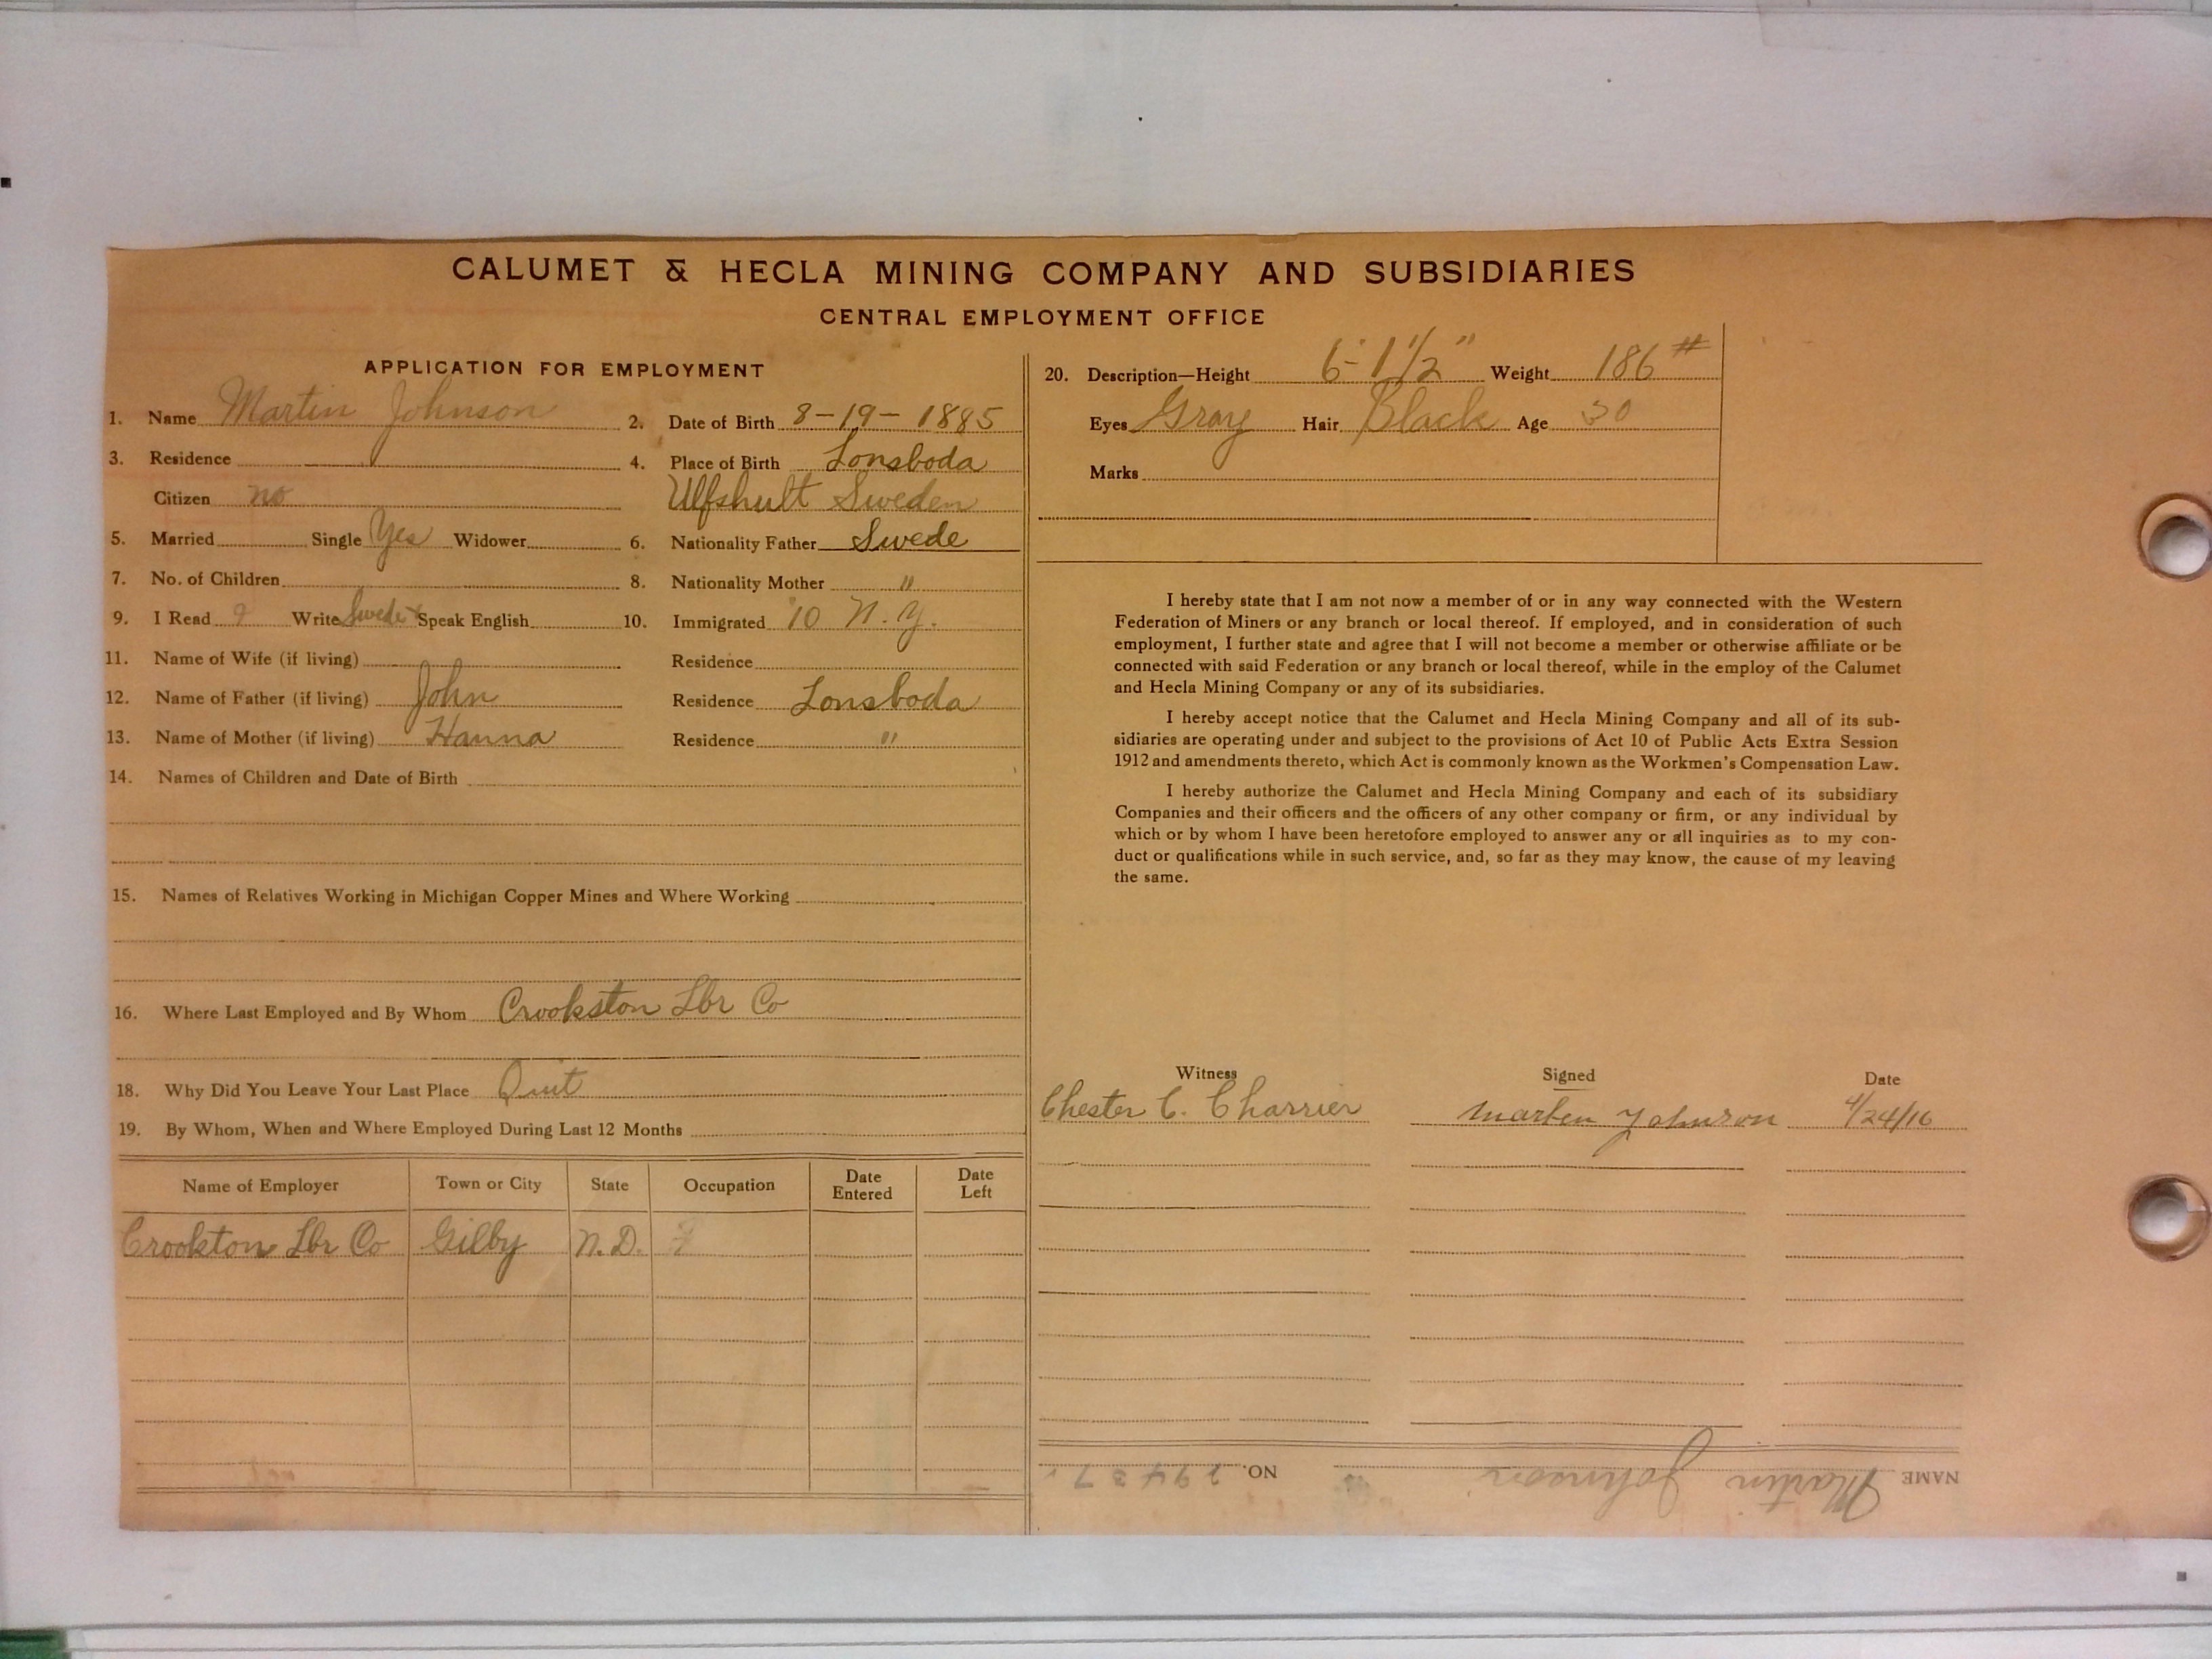 CALUMET & HECLA MINING COMPANY AND SUBSIDIARIES
CENTRAL EMPLOYMENT OFFICE
APPLICATION FOR EMPLOYMENT
1. Name Martin Johnson 2. Date of Birth 8-19-1885
3. Residence 4. Place of Birth Lonsboda
Citizen no Ulfshult Sweden
5. Married Single Yes Widower 6. Nationality Father Swede
7. No. of Children 8. Nationality Mother "
9. I Read Write Swede Speak English 10. Immigrated '10 N.Y.
11. Name of Wife (if living) Residence
12. Name of Father (if living) John Residence Lonsboda
13. Name of Mother (if living) Hanna Residence "
14. Names of Children and Date of Birth
15. Names of Relatives Working in Michigan Copper Mines and Where Working
16. Where Last Employed and By Whom Crookston Lbr Co
18. Why Did You Leave Your Last Place Quit
19. By Whom, When and Where Employed During Last 12 Months
Name of Employer Town or City State Occupation Date Entered Date Left
Crookston Lbr Co Gilby N.D.
20. Description—Height 6'-1 1/2" Weight 186#
Eyes Gray Hair Black Age 30
Marks
I hereby state that I am not now a member of or in any way connected with the Western
Federation of Miners or any branch or local thereof. If employed, and in consideration of such
employment, I further state and agree that I will not become a member or otherwise affiliate or be
connected with said Federation or any branch or local thereof, while in the employ of the Calumet
and Hecla Mining Company or any of its subsidiaries.
I hereby accept notice that the Calumet and Hecla Mining Company and all of its sub-
sidiaries are operating under and subject to the provisions of Act 10 of Public Acts Extra Session
1912 and amendments thereto, which Act is commonly known as the Workmen's Compensation Law.
I hereby authorize the Calumet and Hecla Mining Company and each of its subsidiary
Companies and their officers and the officers of any other company or firm, or any individual by
which or by whom I have been heretofore employed to answer any or all inquiries as to my con-
duct or qualifications while in such service, and, so far as they may know, the cause of my leaving
the same.
Witness Signed Date
Chester C. Charrier Marten Johnson 4/24/16
NAME Martin Johnson NO.